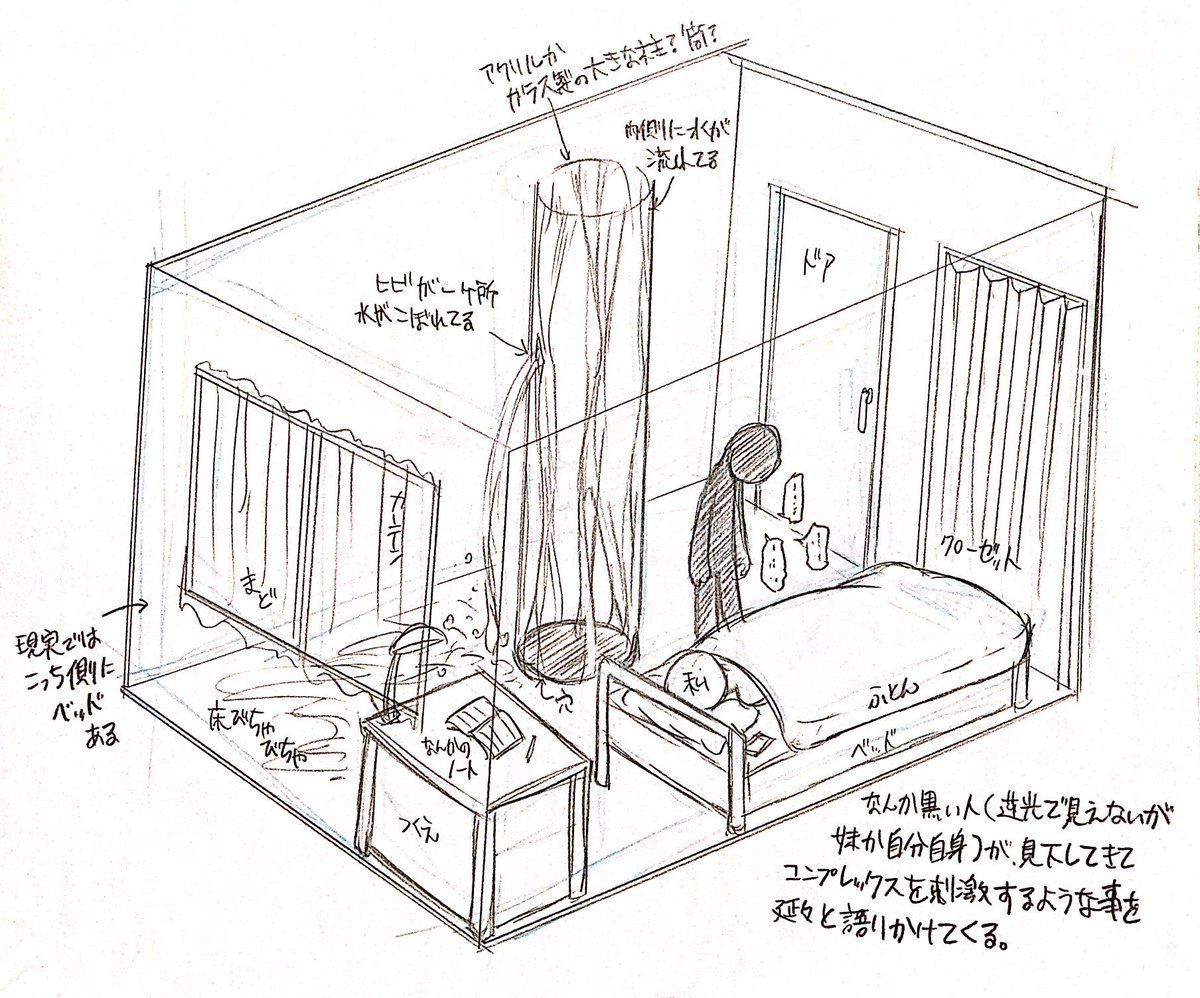 アクリルか
ガラス製の大きな柱?筒?
内側に水が
流れてる
ヒビが一ヶ所
水がこぼれてる
ドア
カーテン
まど
クローゼット
現実では
こっち側に
ベッド
ある
床びちゃ
びちゃ
穴
私
ふとん
ベッド
なんかの
ノート
つくえ
なんか黒い人(逆光で見えないが
妹か自分自身)が、見下してきて
コンプレックスを刺激するような事を
延々と語りかけてくる。